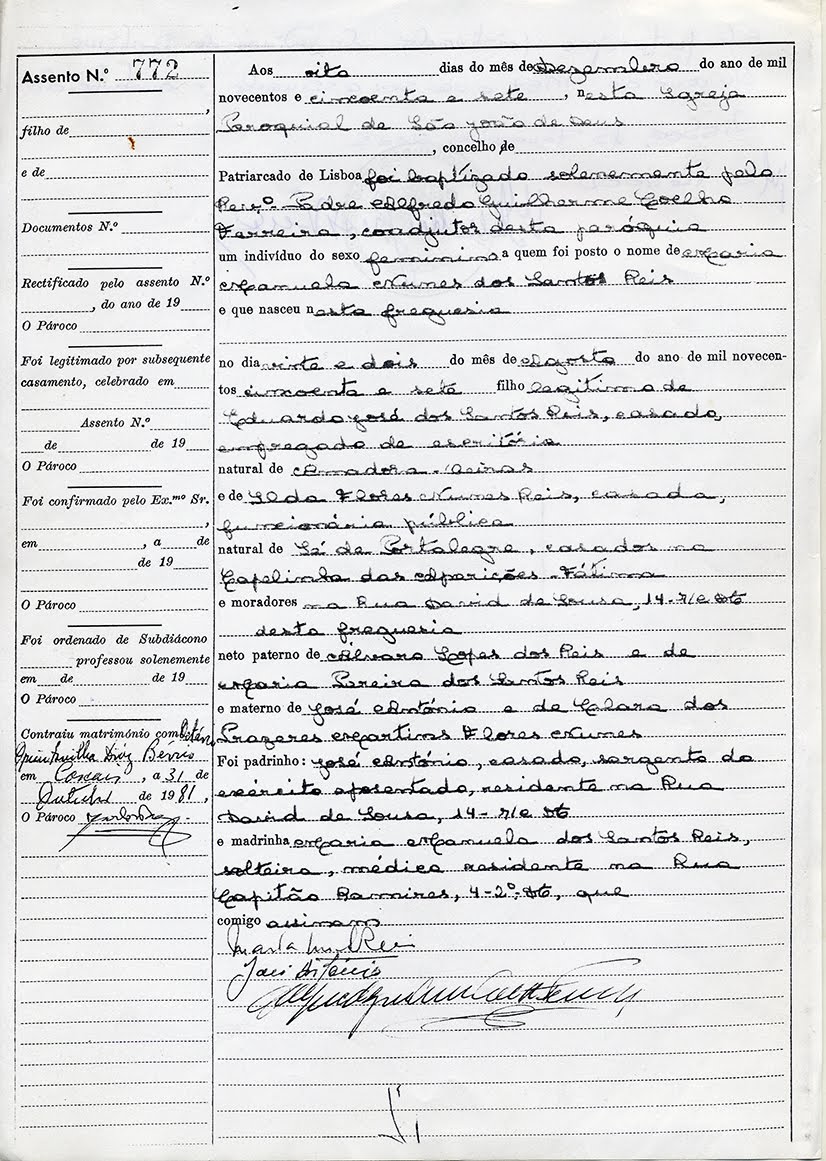 Assento N.º 772
,
filho de
e de
Documentos N.º
Rectificado pelo assento N.º
, do ano de 19
O Pároco
Foi legitimado por subsequente
casamento, celebrado em
Assento N.º
de de 19
O Pároco
Foi confirmado pelo Ex.mo Sr.
,
em , a de
de 19
O Pároco
Foi ordenado de Subdiácono
professou solenemente
em de de 19
O Pároco
Contraiu matrimónio com
em Cascais, a 31 de
de 1981,
O Pároco
Aos oito dias do mês de Dezembro do ano de mil
novecentos e cincoenta e sete, nesta Igreja
Paroquial de São João de Deus
, concelho de
Patriarcado de Lisboa foi baptizado solenemente pelo
Revº. Padre Alfredo Guilherme Coelho
Ferreira, coadjutor desta paróquia
um indivíduo do sexo feminino a quem foi posto o nome de Maria
Manuela Nunes dos Santos Reis
e que nasceu nesta freguesia
no dia vinte e dois do mês de Agosto do ano de mil novecen-
tos cincoenta e sete filho legitima de
Eduardo José dos Santos Reis, casado,
empregado de escritório
natural de Amadora - Oeiras
e de Ilda Flores Nunes Reis, casada,
funcionária pública
natural de Sé de Portalegre, casados na
Capelinha das Aparições - Fátima
e moradores na Rua David de Sousa, 14-r/c Dto
desta freguesia
neto paterno de Álvaro Lopes dos Reis e de
Maria Pereira dos Santos Reis
e materno de José António e de Clara dos
Prazeres Martins Flores Nunes
Foi padrinho: José António, casado, sargento do
exército aposentado, residente na Rua
David de Sousa, 14-r/c Dto
e madrinha Maria Manuela dos Santos Reis,
solteira, médica residente na Rua
Capitão Ramires, 4-2º-Dto, que
comigo assinam
Reis
José António